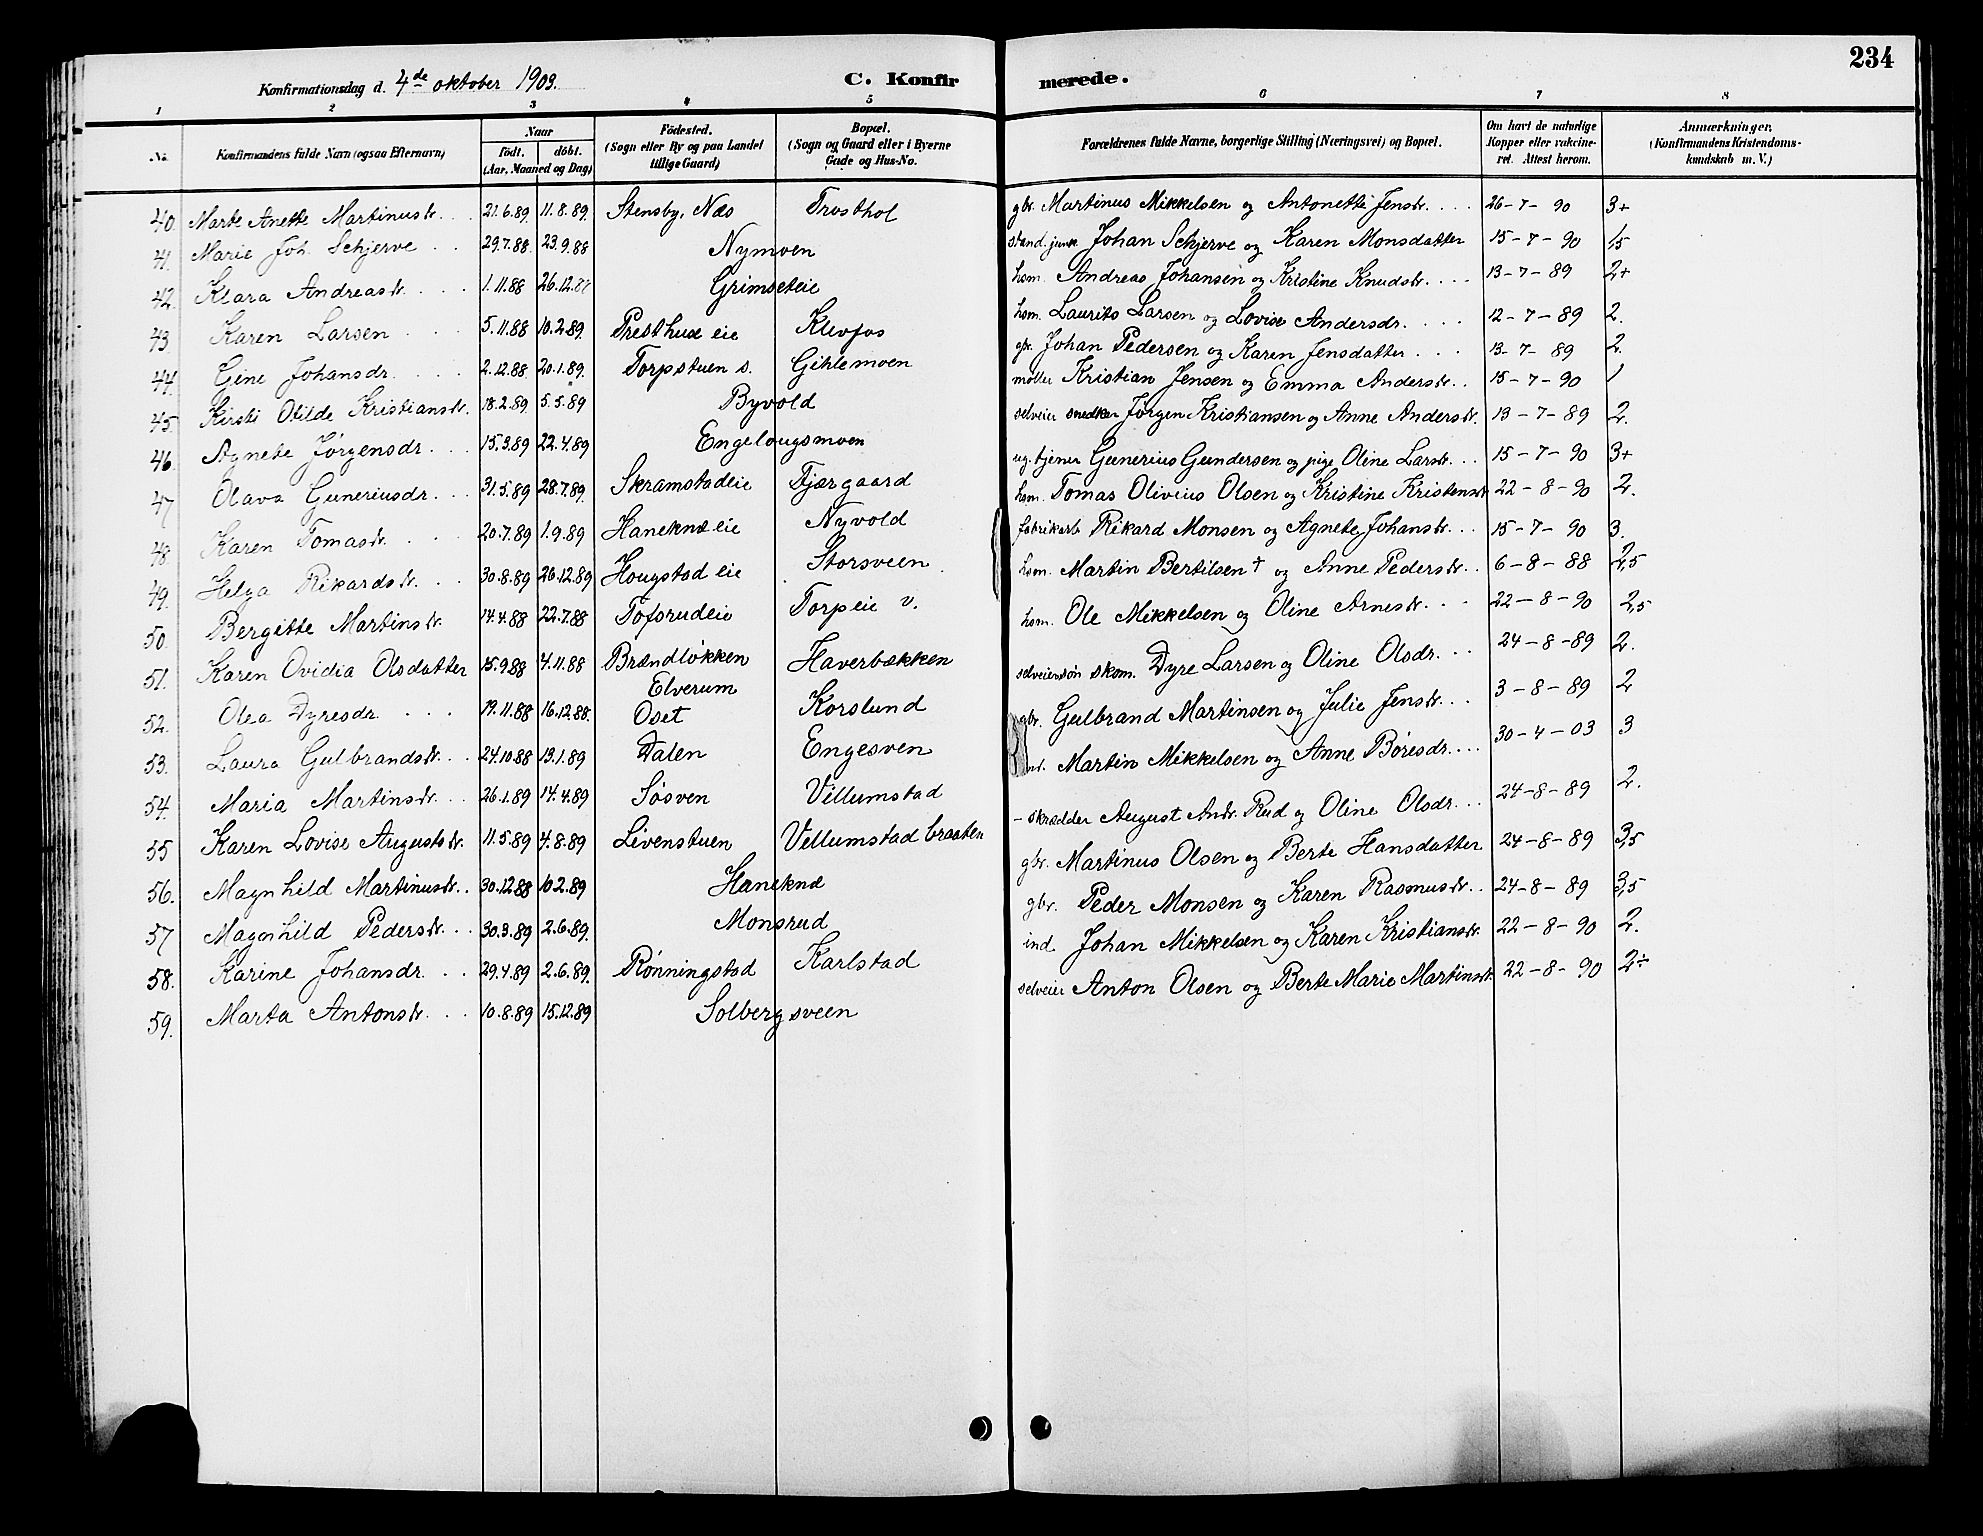 234
Konfirmationsdag d. 4de oktober 1903. C. Konfirmerede.
1 2 3 4 5 6 7 8
No. Konfirmandens fulde Navn (ogsaa Efternavn) Naar födt. döbt. (Aar, Maaned og Dag) Födested. (Sogn eller By og paa Landet tillige Gaard) Bopæl. (Sogn og Gaard eller i Byerne Gade og Hus-No. Forældrenes fulde Navne, borgerlige Stilling (Næringsvei) og Bopæl. Om havt de naturlige Kopper eller vakcineret. Attest herom. Anmærkninger. (Konfirmandens Kristendomskundskab m. V.)
40. Marte Anette Martinusdr. 21.6.89. 11.8.89. Stensby, Næs Trosthol gbr. Martinus Mikkelsen og Antonette Jensdr. 26-7-90 3+
41. Marie Joh. Schjerve 29.7.88. 23.9.88 Nymoen Johan Schjerve og Karen Monsdatter 15-7-90 1,5
42. Klara Andreasdr. 1.11.88 26.12.88 Grimseteie hsm. Andreas Johansen og Kristine Knudsdr. 13-7-89 2+
43. Karen Larsen 5.11.88 10.2.89. Presthud eie Klevfos hsm. Laurits Larsen og Lovise Andersdr. 12-7-89 2.
44. Gine Johansdr. 2.12.88 20.1.89. Torpstuen s. Gihlemoen Johan Pedersen og Karen Jensdatter 13-7-89 2.
45. Kirsti Otilde Kristiansdr. 18.2.89 5.5.89 Byvold møller Kristian Jensen og Emma Andersdr. 15-7-90 1
46. Agnete Jørgensdr. 15.3.89 22.4.89 Engelaugsmoen selveier snedker Jørgen Kristiansen og Anne Andersdr. 13-7-89 2.
47 Olava Guneriusdr. 31.5.89 28.7.89. Skramstadeie Fjærgaard ug. tjener Gunerius Gundersen og pige Oline Larsdr. 15-7-90 3+
48. Karen Tomasdr. 20.7.89 1.9.89 Haneknæ eie Nyvold hsm. Tomas Olivius Olsen og Kristine Kristensdr. 22-8-90 2.
49. Helga Rikardsdr. 30.8.89 26.12.89 Hougstad eie Storsveen fabrikarb. Rikard Monsen og Agnete Johansdr. 15-7-90 3.
50. Bergitte Martinsdr. 14.4.88 22.7.88 Toforudeie Torpeie v. hsm. Martin Bertilsen † og Anne Pedersdr. 6-8-88 2,5
51. Karen Ovidia Olsdatter 15.9.88 4.11.88 Brændløkken Elverum Haverbækken hsm. Ole Mikkelsen og Oline Arnesdr. 22-8-90 2,5
52. Olea Dyresdr. 19.11.88 16.12.88. Oset Korslund selveiersøn skom. Dyre Larsen og Oline Olsdr. 24-8-89 2.
53. Laura Gulbrandsdr. 24.10.88 13.1.89 Dalen Engesven gbr. Gulbrand Martinsen og Julie Jensdr. 3-8-89 2
54. Maria Martinsdr. 26.1.89 14.4.89 Søsven Villumstad Martin Mikkelsen og Anne Børesdr. 30-4-03 3
55 Karen Lovise Augustsdr. 11.5.89 4.8.89 Livenstuen Vellumstad braaten - skrædder August Andr. Rud og Oline Olsdr. 24-8-89 2.
56. Magnhild Martinusdr. 30.12.88 10.2.89 Haneknæ gbr. Martinus Olsen og Berte Hansdatter 24-8-89 3,5
57 Magnhild Pedersdr. 30.3.89 2.6.89. Monsrud gbr. Peder Monsen og Karen Rasmusdr. 24-8-89 3,5
58. Karine Johansdr. 29.4.89 2.6.89. Rønningstad Karlstad ind. Johan Mikkelsen og Karen Kristiansdr. 22-8-90 2.
59. Marta Antonsdr. 10.8.89 15.12.89 Solbergsveen selveier Anton Olsen og Berte Marie Martinsdr. 22-8-90 2÷